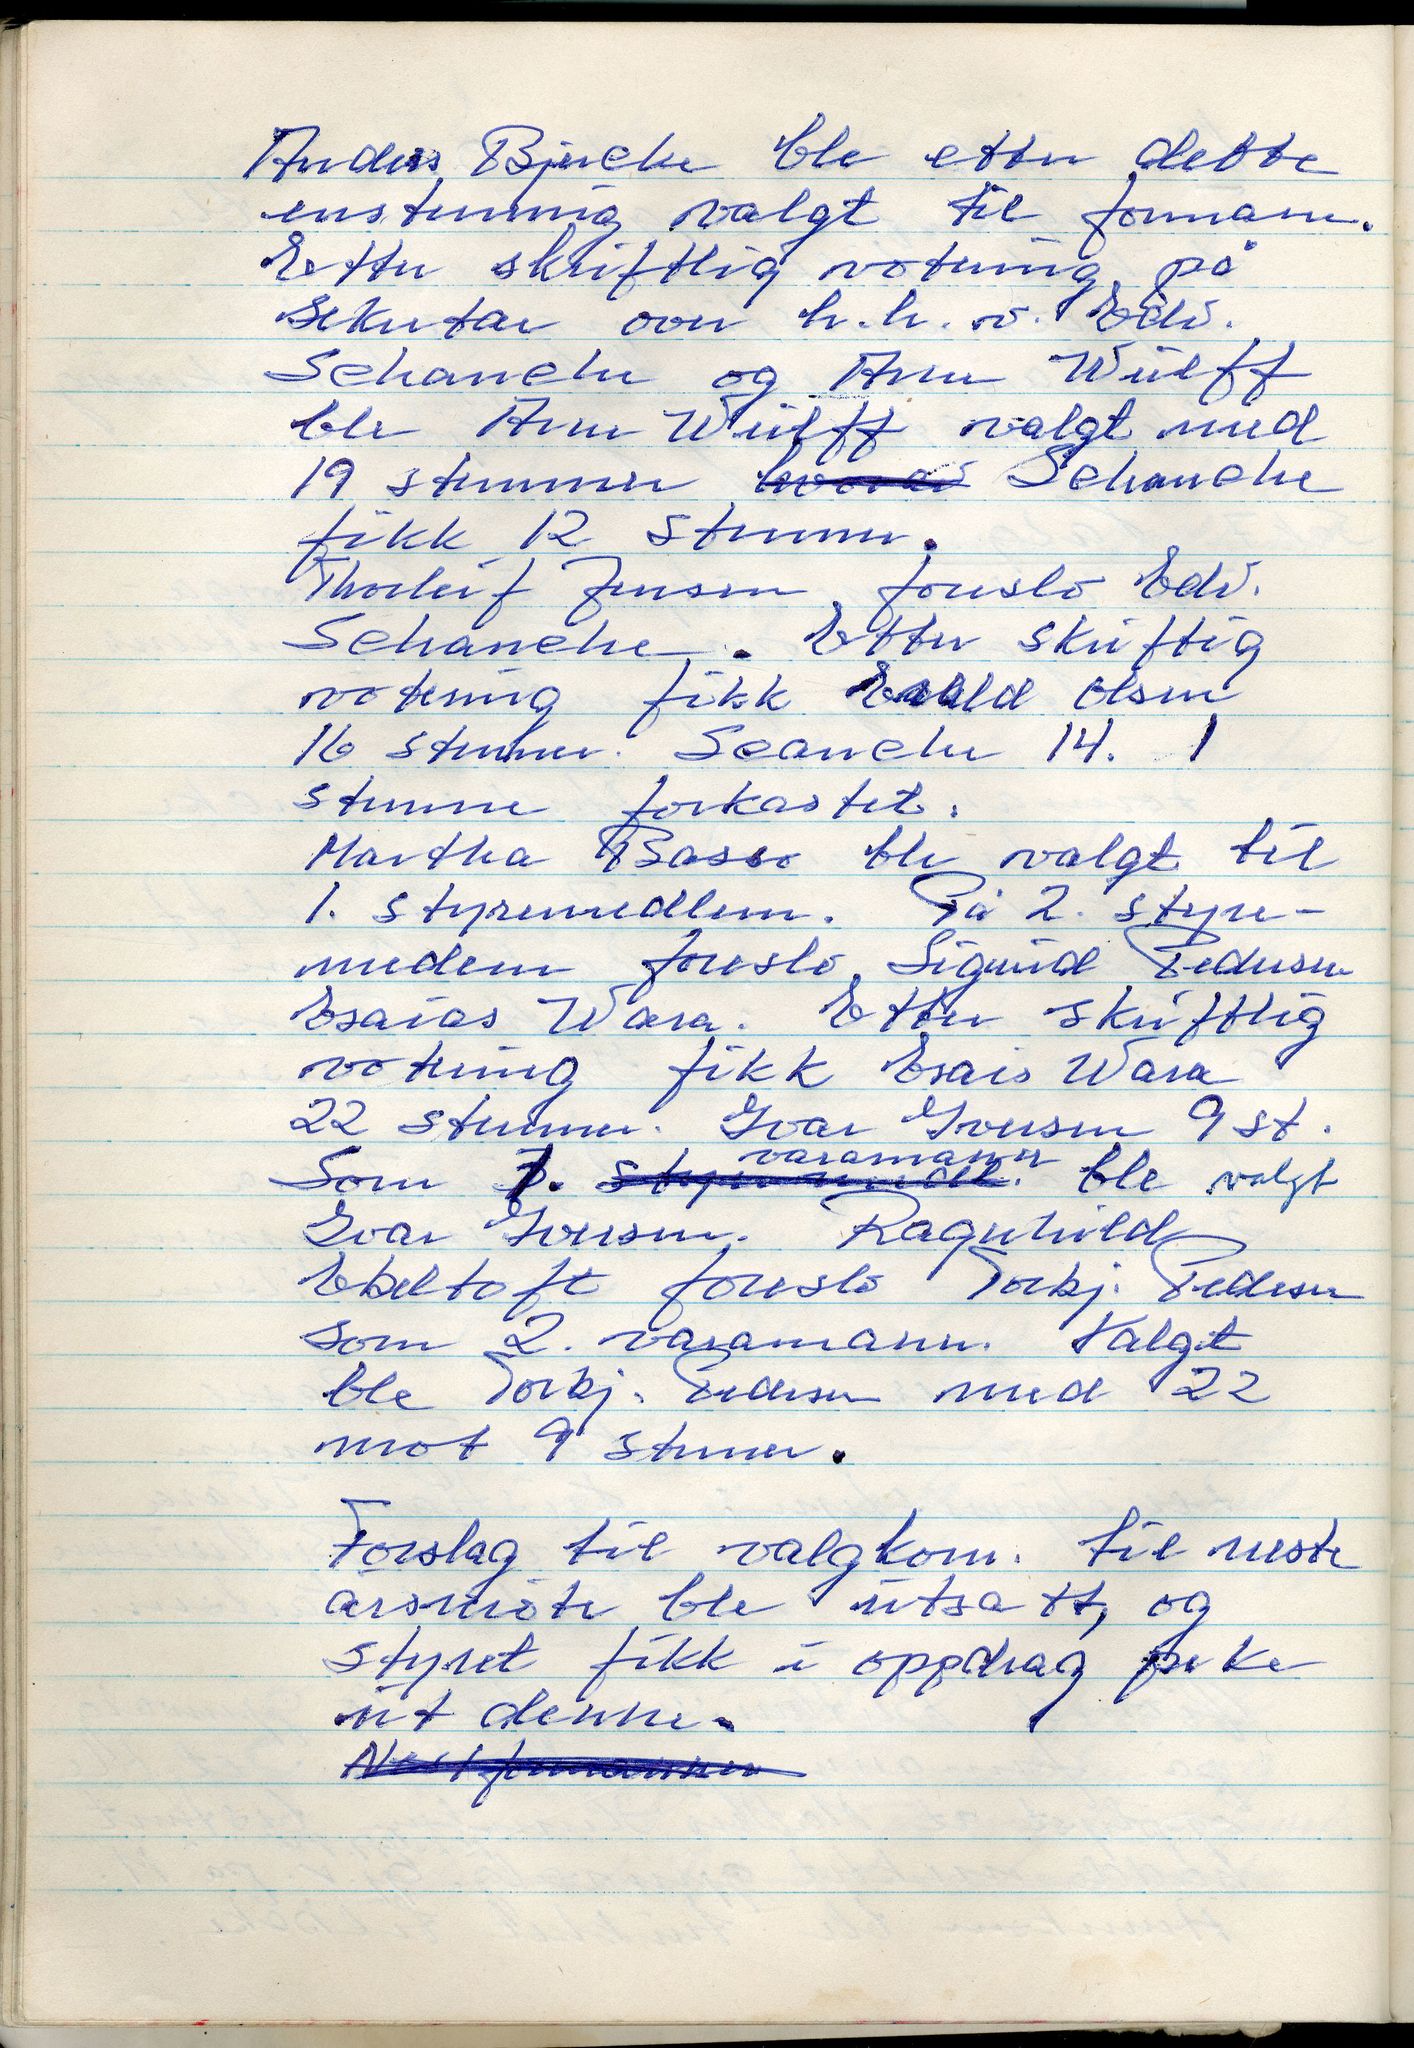 Anders Bjerche ble etter dette
enstemmig valgt til formann.
Etter skriftlig votering på
sekretær over h.h.v. Edv.
Schanche og Arne Wülff
ble Arne Wülff valgt med
19 stemmer hvorav Schanche
fikk 12 stemmer.
Thorleif Jensen foreslo Edv.
Schanche. Etter skriftig
votering fikk Olsen
16 stemmer. Scanche 14. 1
stemme forkastet.
Martha Basso ble valgt til
1. styremedlem. På 2. styre-
medem foreslo Sigurd Pedersen
Esaias Wara. Etter skriftlig
votering fikk Esais Wara
22 stemmer. Ivar Iversen 9 st.
varamann
Som 1. styremedl. ble valgt
Ivar Iversen. Ragnhild
Ebeltoft foreslo Torbj. Pedersen
som 2. varamann. Valgt
ble Torbj. Pedersen med 22
mot 9 stemmer.
Forslag til valgkom. til neste
årsmöte ble utsatt, og
styret fikk i oppdrag peke
ut denne.
Nestformannen